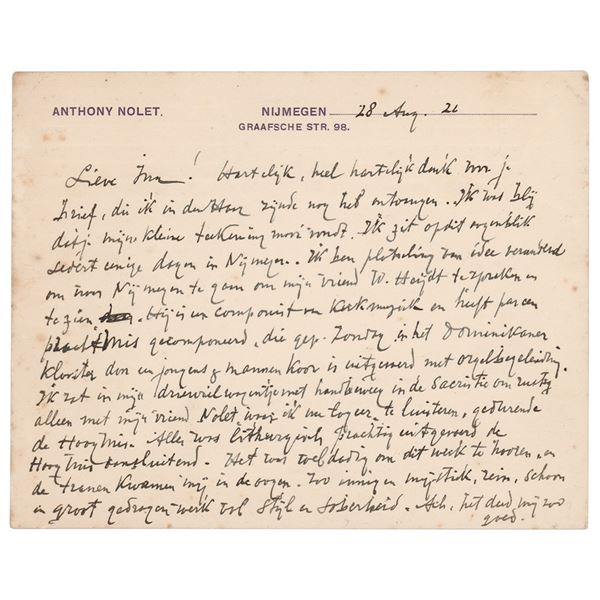 ANTHONY NOLET. NIJMEGEN 28 Aug. 21
GRAAFSCHE STR. 98.
Lieve ! Hartelijk, heel hartelijk dank voor je
brief, die ik in den Haag zijnde nog heb ontvangen. Ik was blij
dat je mijn kleine teekening mooi vondt. Ik zit op dit oogenblik
sedert eenige dagen in Nijmegen. Ik ben plotseling van idee veranderd
om naar Nijmegen te gaan om mijn vriend W. Heijdt te spreken en
te zien. Hij is een componist van Kerkmuziek en heeft pas een
pracht Mis gecomponeerd, die gep. Zondag in het Dominikaner
klooster door een jongens & mannen koor is uitgevoerd met orgelbegeleiding.
Ik zat in mijn driewielwagentje met handbeweg in de Sacristie om rustig
alleen met mijn vriend Nolet, waar ik nu logeer te luisteren, gedurende
de Hoogmis. Alles was lithurgisch prachtig uitgevoerd de
Hoogmis aansluitend. Het was weldadig om dit werk te hooren, en
de tranen kwamen mij in de oogen. Zoo innig en mystiek, rein, schoon
en groot gedragen werk vol Stijl en Soberheid. Ach, het deed mij zoo
goed.